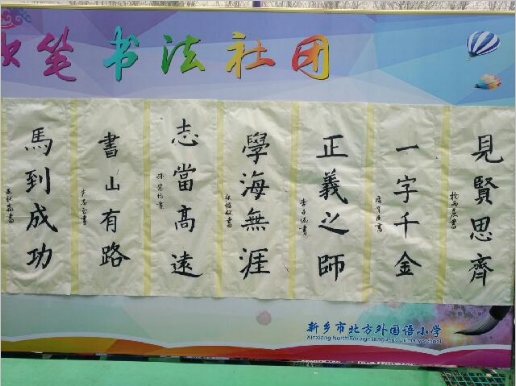 软笔书法社团
見賢思齊
一字千金
正義之師
學海無涯
志當高遠
書山有路
馬到成功
新乡市北方外国语小学